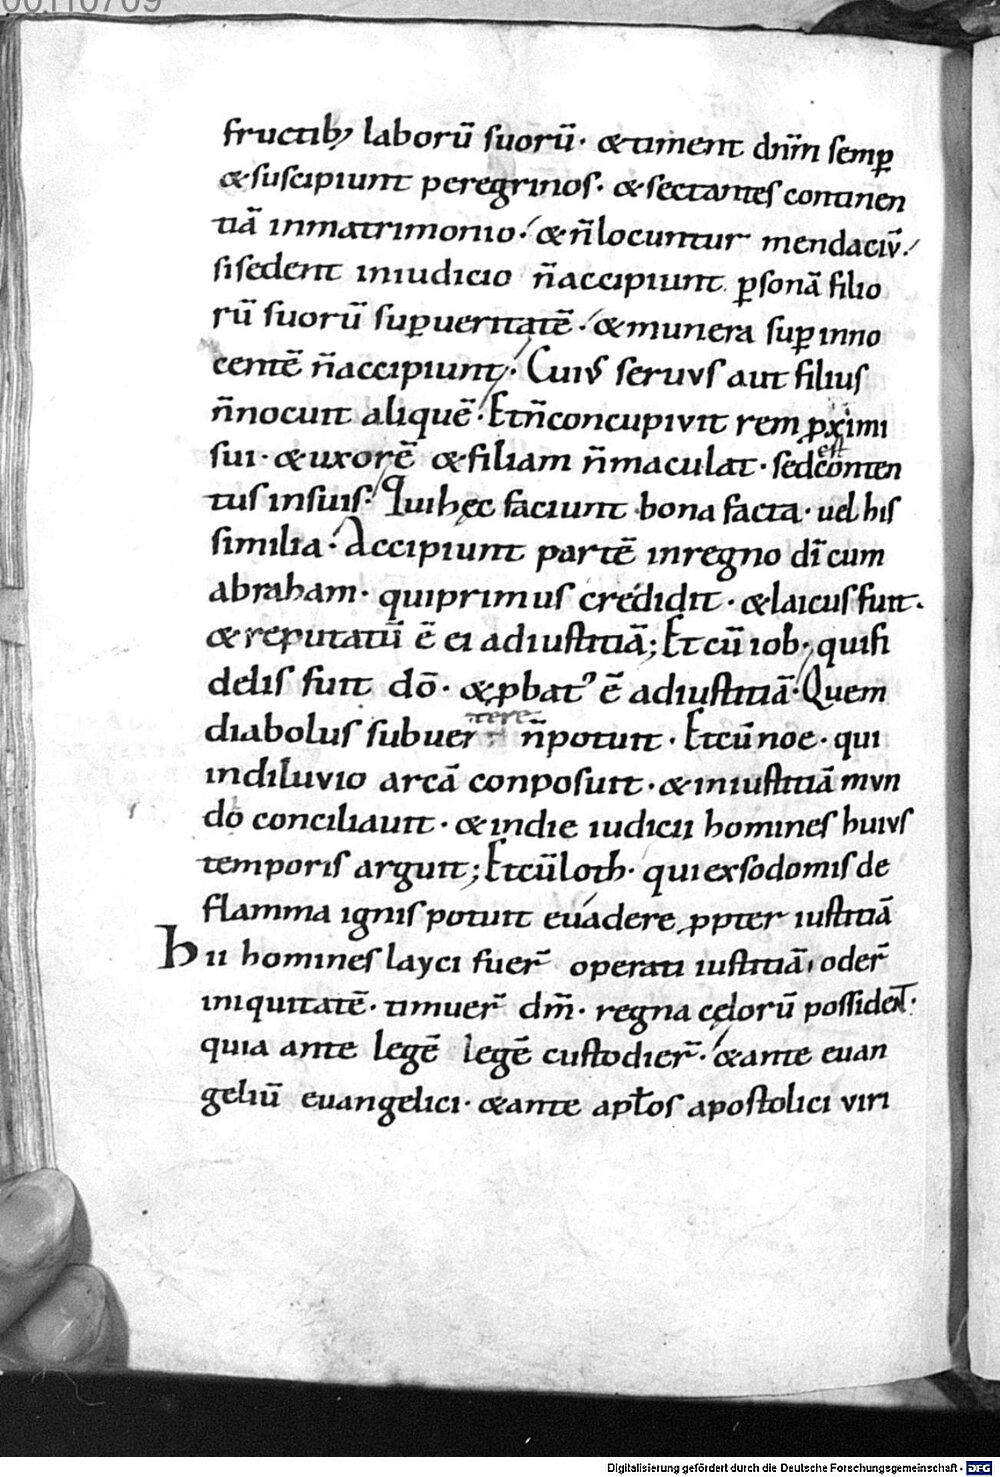 00110709
fructib; laborū suorū· &timent dn̄m semꝑ
&suscipiunt peregrinos· &sectantes continen
tiā inmatrimonio· &n̄locuntur mendaciū·
sisedent iniudicio n̄accipiunt ꝑsonā filio
rū suorū suꝑueritatē· &munera suꝑ inno
centē n̄accipiunt· Cuius seruus aut filius
n̄nocuit aliquē· Etn̄concupiuit rem ꝓximi
sui· &uxorē &filiam n̄maculat· sed est conten
tus insuis· Quihęc faciunt bona facta· uel his
similia· Accipiunt partē inregno dī cum
abraham· quiprimus credidit· &laicusfuit·
&reputatū ē ei adiustitiā; Etcū iob· quifi
delis fuit dō· &ꝓbat᾿ ē adiustitiā· Quem
diabolus subuertere n̄potuit· Etcūnoe· qui
indiluuio arcā conposuit· &iniustitiā mun
dō conciliauit· &indie iudicii homines huius
temporis arguit; Etcūloth· quiexsodomis de
flamma ignis potuit euadere ꝓpter iustitiā
hii homines layci fuer̄ operati iustitiā, oder̄
iniquitatē· timuer̄ dm̄· regna cęlorū possident·
quia ante legē legē custodier̄· &ante euan
geliū euangelici· &ante apłos apostolici viri
Digitalisierung gefördert durch die Deutsche Forschungsgemeinschaft - DFG